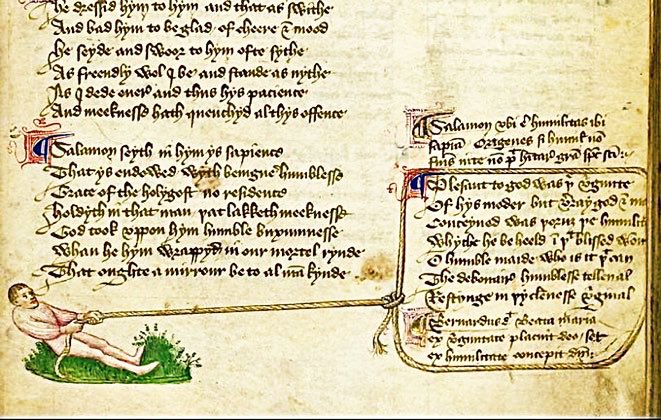 he dressid hym to hym and that as swithe
And bad hym to be glad of cheere & mood
He seyde and swoor to hym ofte sythe
As freendly wol I be and stande as nythe
As I dede over and thus hys pacience
And meeknesse hath quenchyd al thys offence
Salamon seyth in hym ys sapience
That ys endowed wyth benigne humblesse
Grace of the holygost no residence
Holdyth in that man þat lakketh meeknesse
God took uppon hym humble buxumnesse
Whan he hym wrappyd in our mortel rynde
That oughte a mirrour be to al mã kynde
Salamon vbi ẽ humilitas ibi
sapiã Origenes si humil' nõ
Plesant to god was þe virginite
Of hys moder but verray god &
Conceyued was þorw þe humilit
Whyche he beheeld ĩ þt blissed
O humble maide who is it þt can
The debonaire humblesse tellen al
Restynge in þy clennesse virginal
Bernardus Beata maria
ex virginitate placuit deo / set
ex humilitate concepit dñm